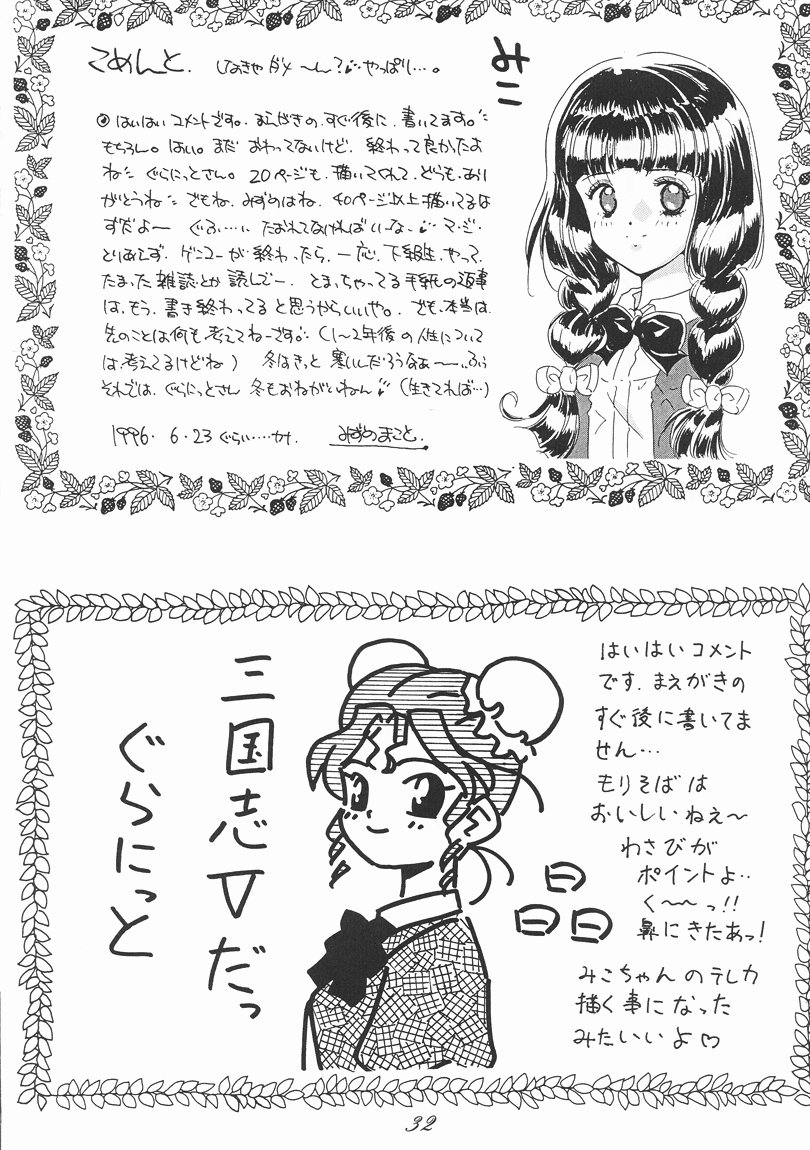 こめんと. しなきゃダメ 〜ん？ やっぱり…。
みこ
はいはいコメントです。まんがきの、すぐ後に、書いてます。
もちろん。はい。まだ おわってないけど、終わって良かったよ
ね ぐらにっとさん。20ページも、描いてくれて、どうも、あり
がとうね でもね、みずのはね、40ページ以上描いてるは
ずだよー ぐふ…… たおれてなければいーな、 マ・ジ・
とりあえず、ゲンコーが終わったら、一応、下級生、やって、
たまった雑誌とか読んでー、とまっちゃってる手紙の返事
は、もう、書き終わってると思うからいいや。でも、本当は
先のことは何も考えてねーです (1〜2年後の人生について
は考えてるけどね) 冬はきっと寒いんだろうなぁ〜、、ふぅ
それでは、ぐらにっとさん 冬もおねがいねん (生きてれば…)
1996. 6.23ぐらい…か. みずのまこと.
はいはいコメント
です. まえがきの
すぐ後に書いてま
せん…
もりそばは
おいしいねえ〜
わさびが
ポイントよ‥
く〜〜っ!!
鼻にきたあっ!
みこちゃんのテレカ
描く事になった
みたいいよ♡
三国志▽だっ
ぐらにっと
32